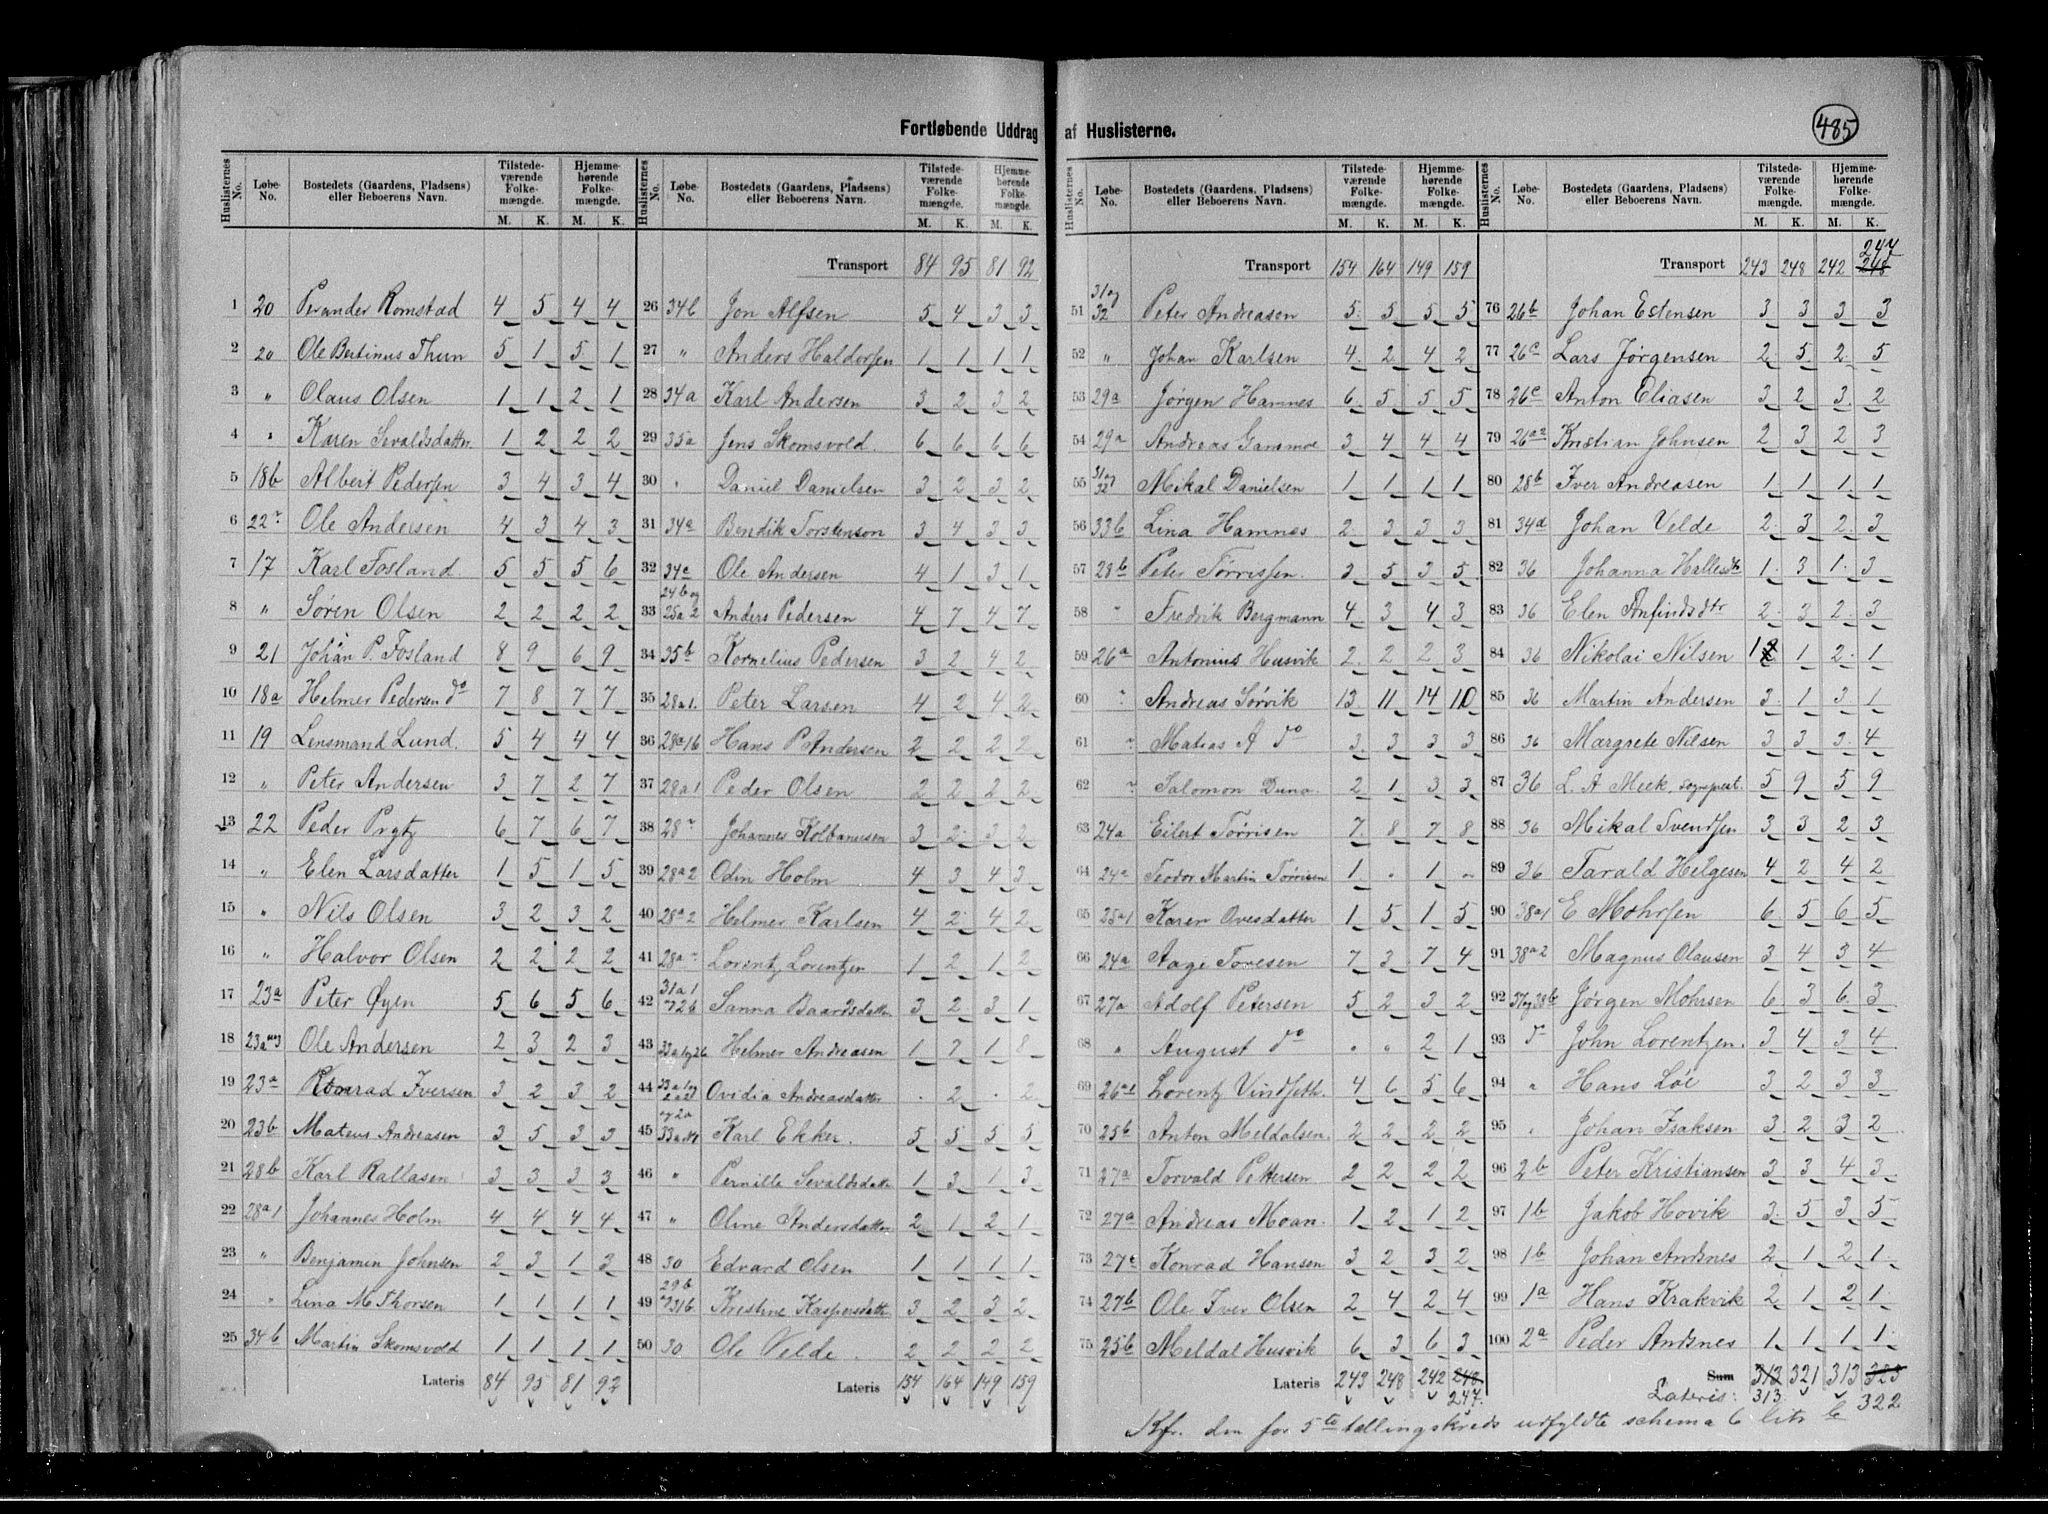 485
Fortløbende Uddrag af Huslisterne.
Huslisternes No. | Løbe-No. | Bostedets (Gaardens, Pladsens) eller Beboerens Navn. | Tilstedeværende Folkemængde. M. K. | Hjemmehørende Folkemængde. M. K.
1 20 Perander Romstad 4 5 4 4
2 20 Ole Bertinus Thun 5 1 5 1
3 " Olaus Olsen 1 1 2 1
4 " Karen Sevaldsdatter 1 2 2 2
5 18b Albert Pedersen 3 4 3 4
6 22 Ole Andersen 4 3 4 3
7 17 Karl Fosland 5 5 5 6
8 " Søren Olsen 2 2 2 2
9 21 Johan P. Fosland 8 9 6 9
10 18a Helmer Pedersen do 7 8 7 7
11 19 Lensmand Lund. 5 4 4 4
12 " Peter Andersen 3 7 2 7
13 22 Peder Prytz 6 7 6 7
14 " Elen Larsdatter 1 5 1 5
15 " Nils Olsen 3 2 3 2
16 " Halvor Olsen 2 2 2 2
17 23a Peter Øyen 5 6 5 6
18 Ole Andersen 2 3 2 3
19 23a Konrad Iversen 3 2 3 2
20 23b Mateus Andreasen 3 5 3 3
21 28b Karl Rallasen 3 3 3 3
22 28a1 Johannes Holm 4 4 4 4
23 " Benjamin Johnsen 2 3 1 3
24 " Lina M Thorsen 1 1 1 1
25 34b Martin Skomsvold 1 1 1 1
Lateris 84 95 81 92
Huslisternes No. | Løbe-No. | Bostedets (Gaardens, Pladsens) eller Beboerens Navn. | Tilstedeværende Folkemængde. M. K. | Hjemmehørende Folkemængde. M. K.
Transport 84 95 81 92
26 34b Jon Alfsen 5 4 3 3
27 " Anders Haldorsen 1 1 1 1
28 34a Karl Andersen 3 2 3 2
29 35a Jens Skomsvold. 6 6 6 6
30 " Daniel Danielsen 3 2 3 2
31 34a Bendik Torstenson 3 4 3 3
32 34c Ole Andersen 4 1 3 1
33 24b og 25a2 Anders Pedersen 4 7 4 7
34 35b Kornelius Pedersen 3 2 4 2
35 28a1. Peter Larsen 4 2 4 2
36 28a1b Hans P Andersen 2 2 2 2
37 28a1 Peder Olsen 2 2 2 2
38 28 Johannes Kolbanussen 3 2 3 2
39 28a2 Odin Holm 4 3 4 3
40 28a2 Helmer Karlsen 4 2 4 2
41 28a Lorentz Lorentzen 1 2 1 2
42 31a1 Sanna Baardsdatter 3 2 3 1
43 Helmer Andreasen 1 7 1 8
44 Ovidia Andreasdatter . 2 . 2
45 Karl Ekker. 5 5 5 5
46 " Pernille Sevaldsdatter 1 3 1 3
47 " Oline Andersdatter 2 1 2 1
48 30 Edvard Olsen 1 1 1 1
49 29b Kristine Kaspersdatter 3 2 3 2
50 30 Ole Velde. 2 2 2 2
Lateris 154 164 149 159
Huslisternes No. | Løbe-No. | Bostedets (Gaardens, Pladsens) eller Beboerens Navn. | Tilstedeværende Folkemængde. M. K. | Hjemmehørende Folkemængde. M. K.
Transport 154 164 149 159
51 31 og 32 Peter Andreasen 5 5 5 5
52 " Johan Karlsen 4 2 4 2
53 29a Jørgen Hamnes 6 5 5 5
54 29a Andreas Gammoe 3 4 4 4
55 31 og 32 Mikal Danielsen 1 1 1 1
56 33b Lina Hamnes 2 3 3 3
57 28b Peter Tørrissen. 3 5 3 5
58 " Fredrik Bergmann 4 3 4 3
59 26a Antonius Husvik 2 2 2 3
60 " Andreas Sørvik 13 11 14 10
61 " Matias A do 3 3 3 3
62 " Salomon Duna. 2 1 3 3
63 24a Eilert Tørrisen 7 8 7 8
64 24a Teodor Martin Tørrisen 1 " 1 "
65 25a1 Karen Ovesdatter 1 5 1 5
66 24a Aage Toresen 7 3 7 4
67 27a Adolf Petersen 5 2 3 2
68 " August do " " 2 1
69 26a1 Lorentz Vindseth. 4 6 5 6
70 25b Anton Meldalsen. 2 2 2 2
71 27a Torvald Pettersen 2 2 2 2
72 27a Andreas Moan. 1 2 1 2
73 27c Konrad Hansen 3 2 3 2
74 27b Ole Iver Olsen 2 4 2 4
75 25b Meldal Husvik 6 3 6 3
Lateris 243 248 242 248
247.
Huslisternes No. | Løbe-No. | Bostedets (Gaardens, Pladsens) eller Beboerens Navn. | Tilstedeværende Folkemængde. M. K. | Hjemmehørende Folkemængde. M. K.
247
Transport 243 248 242 248
76 26b Johan Estensen 3 3 3 3
77 26c Lars Jørgensen 2 5 2 5
78 26c Anton Eliasen 3 2 3 2
79 26a2 Kristian Johnsen 2 3 2 3
80 28b Iver Andreasen 1 1 1 1
81 34d Johan Velde 2 3 2 3
82 36 Johanna Hallesdtr 1 3 1 3
83 36 Elen Anfindsdtr 2 3 2 3
84 36 Nikolai Nilsen 1 1 2 1
85 36 Martin Andersen 3 1 3 1
86 36 Margrete Nilsen 3 3 3 4
87 36 L. A Meek, sogneprest. 5 9 5 9
88 36 Mikal Svendsen 3 3 2 3
89 36 Tarald Helgesen 4 2 4 2
90 38a1 E Mohrsen 6 5 6 5
91 38a2 Magnus Olausen 3 4 3 4
92 37og38b Jørgen Mohrsen 6 3 6 3
93 do John Lorentzen. 3 4 3 4
94 " Hans Løe 3 2 3 3
95 " Johan Isaksen 3 2 3 2
96 2b Peter Kristiansen 3 3 4 3
97 1b Jakob Hovik 3 5 3 5
98 1b Johan Andsnes 2 1 2 1
99 1a Hans Krakvik 2 1 2 1
100 2a Peder Andsnes 1 1 1 1
Sum 312 321 313 323
Lateris: 313 322
Kfr. den for 5te tællingskreds udfyldte schema 6 litr b